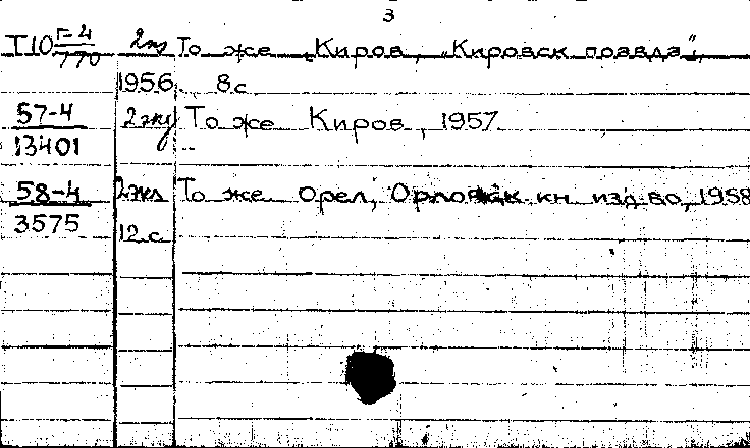 3
Т10 Г-4/770 2экз То же „Киров, „Кировск правда",
1956. 8с
57-4 2экз То же Киров, 1957
13401
58-4 2экз То же Орел, Орловск кн изд-во, 1958
3575 12 с.